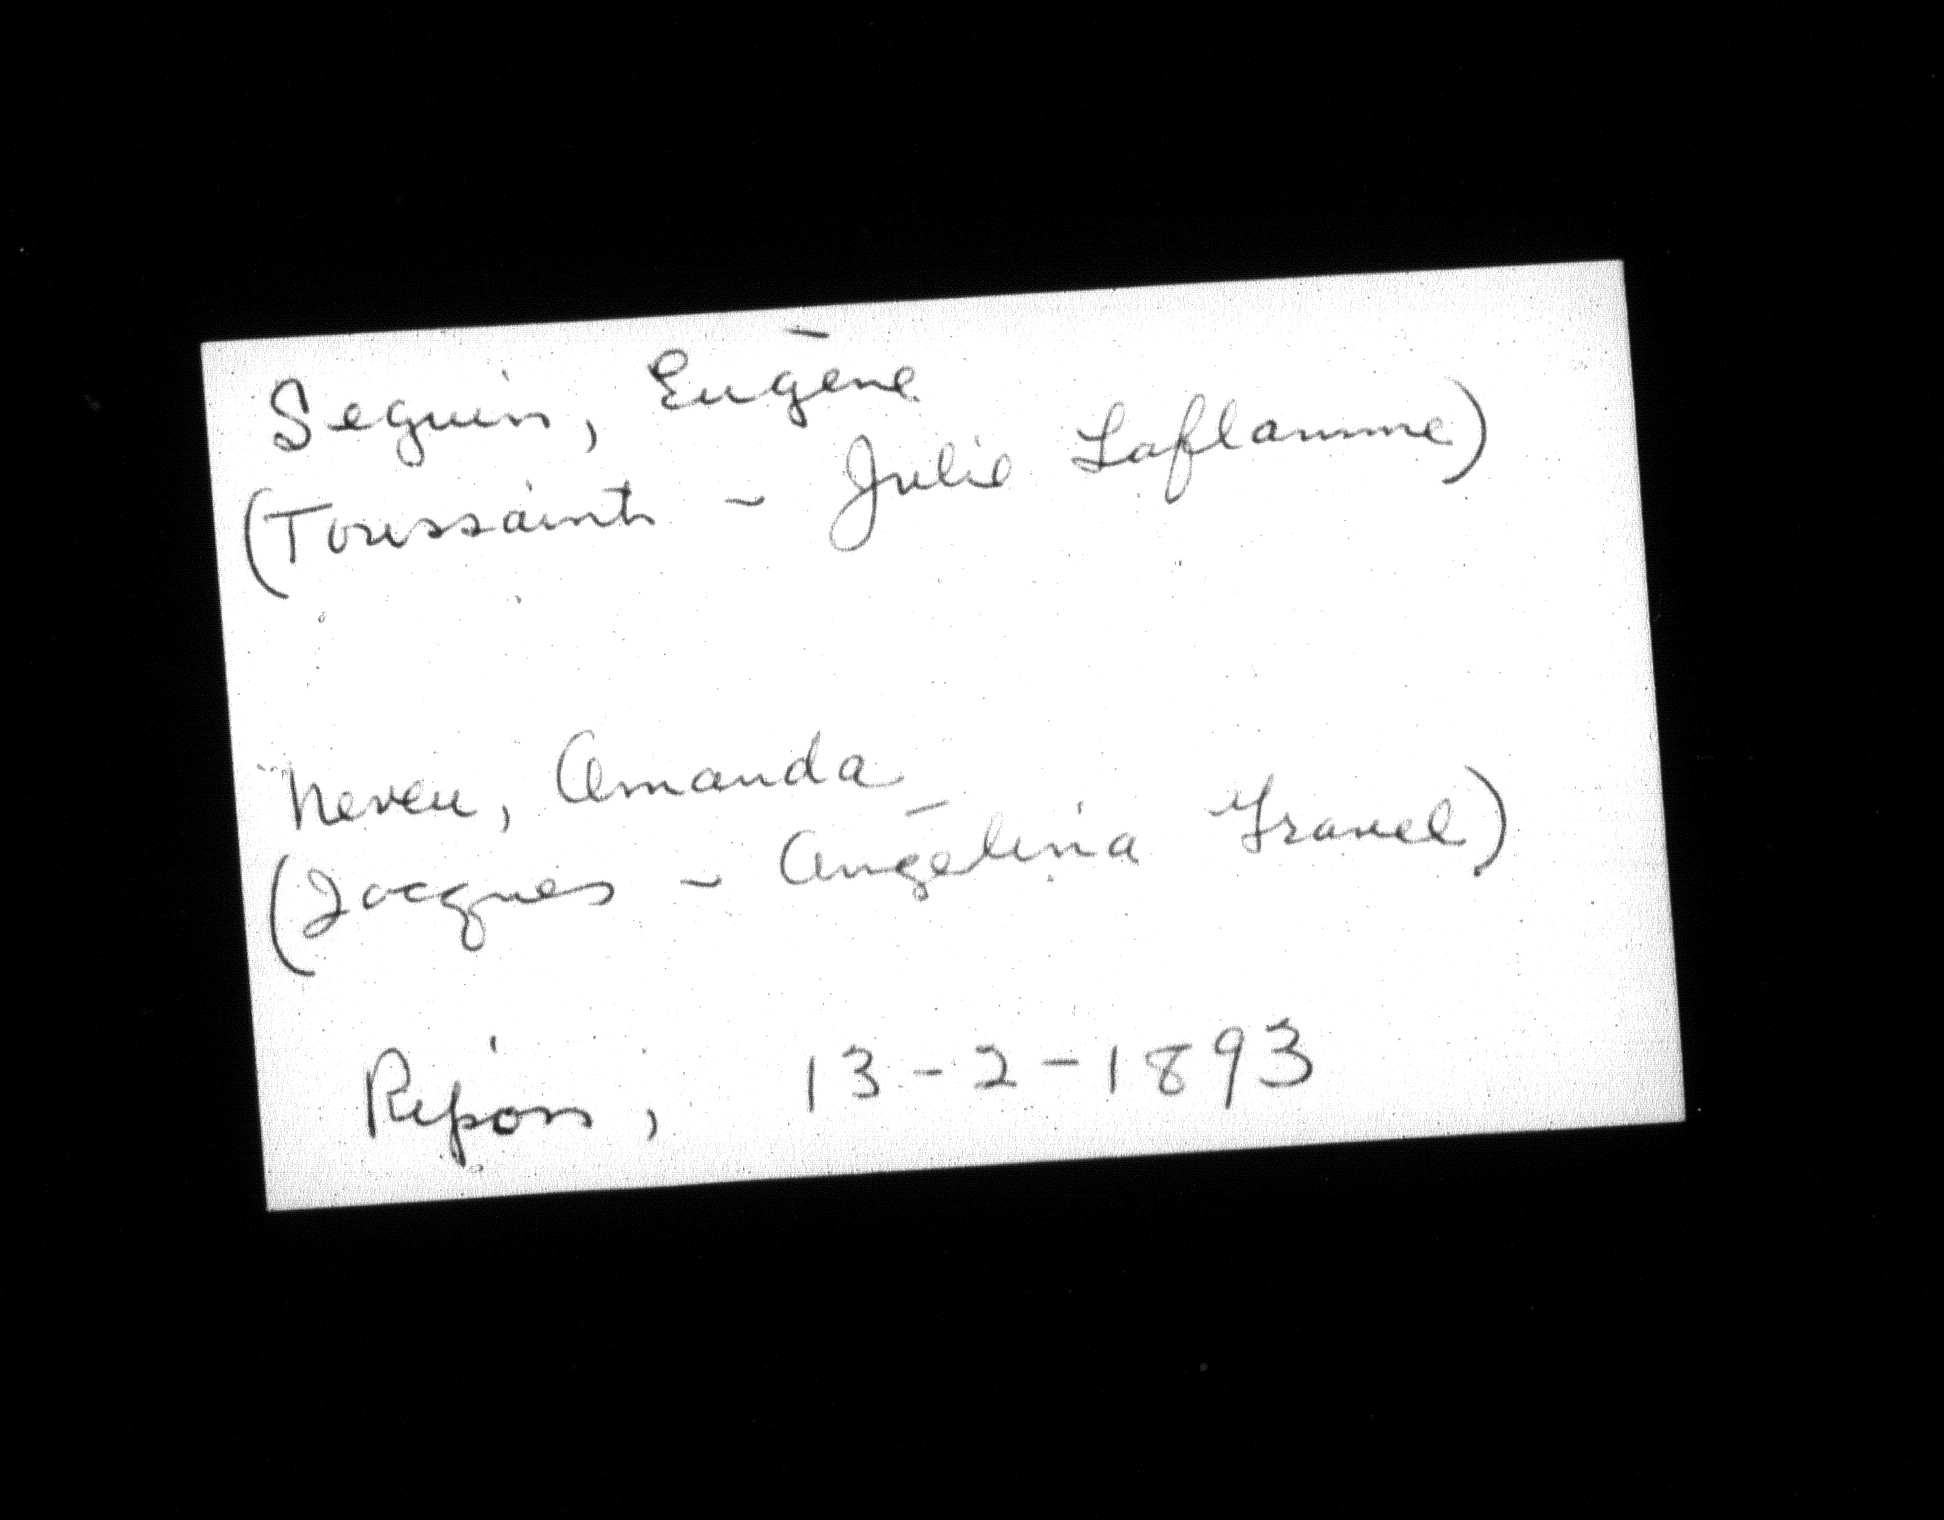 Seguin, Eugène
(Toussaint - Julie Laflamme)
Neveu, Amanda
(Jacques - Angélina Gravel)
Ripon, 13-2-1893